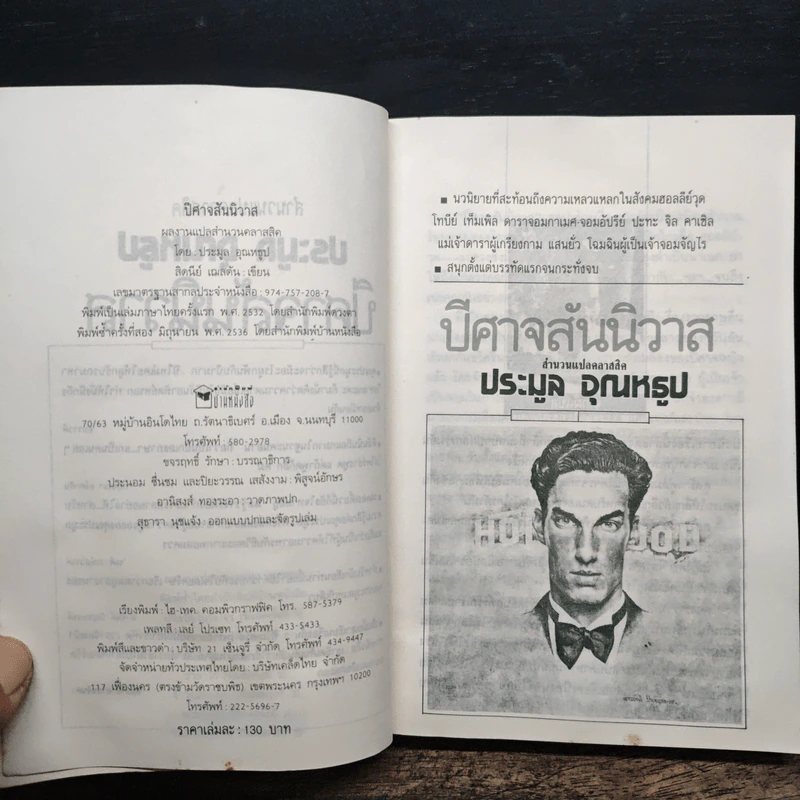 ปีศาจสันนิวาส
ผลงานแปลสำนวนคลาสสิค
โดย ประมูล อุณหธูป
สิดนีย์ เฌลิดัน : เขียน
เลขมาตรฐานสากลประจำหนังสือ : 974-757-208-7
พิมพ์เป็นเล่มภาษาไทยครั้งแรก พ.ศ. 2532 โดยสำนักพิมพ์ดวงตา
พิมพ์ซ้ำครั้งที่สอง มิถุนายน พ.ศ. 2536 โดยสำนักพิมพ์บ้านหนังสือ
บ้านหนังสือ
70/63 หมู่บ้านอินโดไทย ถ.รัตนาธิเบศร์ อ.เมือง จ.นนทบุรี 11000
โทรศัพท์ : 580-2978
ขจรฤทธิ์ รักษา : บรรณาธิการ
ประนอม ชื่นชม และปิยะวรรณ เสสังงาม : พิสูจน์อักษร
อานิสงส์ ทองระอา : วาดภาพปก
สุธารา นุชแจ้ง : ออกแบบปกและจัดรูปเล่ม
เรียงพิมพ์ : ไฮ-เทค คอมพิวกราฟฟิค โทร. 587-5379
เพลทสี : เลย์ โปรเซท โทรศัพท์ 433-5433
พิมพ์สีและขาวดำ : บริษัท 21 เซ็นจูรี่ จำกัด โทรศัพท์ 434-9447
จัดจำหน่ายทั่วประเทศไทยโดย : บริษัทเคล็ดไทย จำกัด
117 เฟื่องนคร (ตรงข้ามวัดราชบพิธ) เขตพระนคร กรุงเทพฯ 10200
โทรศัพท์ : 222-5696-7
ราคาเล่มละ : 130 บาท
■ นวนิยายที่สะท้อนถึงความเหลวแหลกในสังคมฮอลลีย์วุด
โทบีย์ เท็มเพิล ดาราจอมกาเมศ-จอมอัปรีย์ ปะทะ จิล คาเซิล
แม่เจ้าดาราผู้เกรียงกาม แสนยั่ว โฉมฉินผู้เป็นเจ้าจอมจัญไร
■ สนุกตั้งแต่บรรทัดแรกจนกระทั่งจบ
ปีศาจสันนิวาส
สำนวนแปลคลาสสิค
ประมูล อุณหธูป